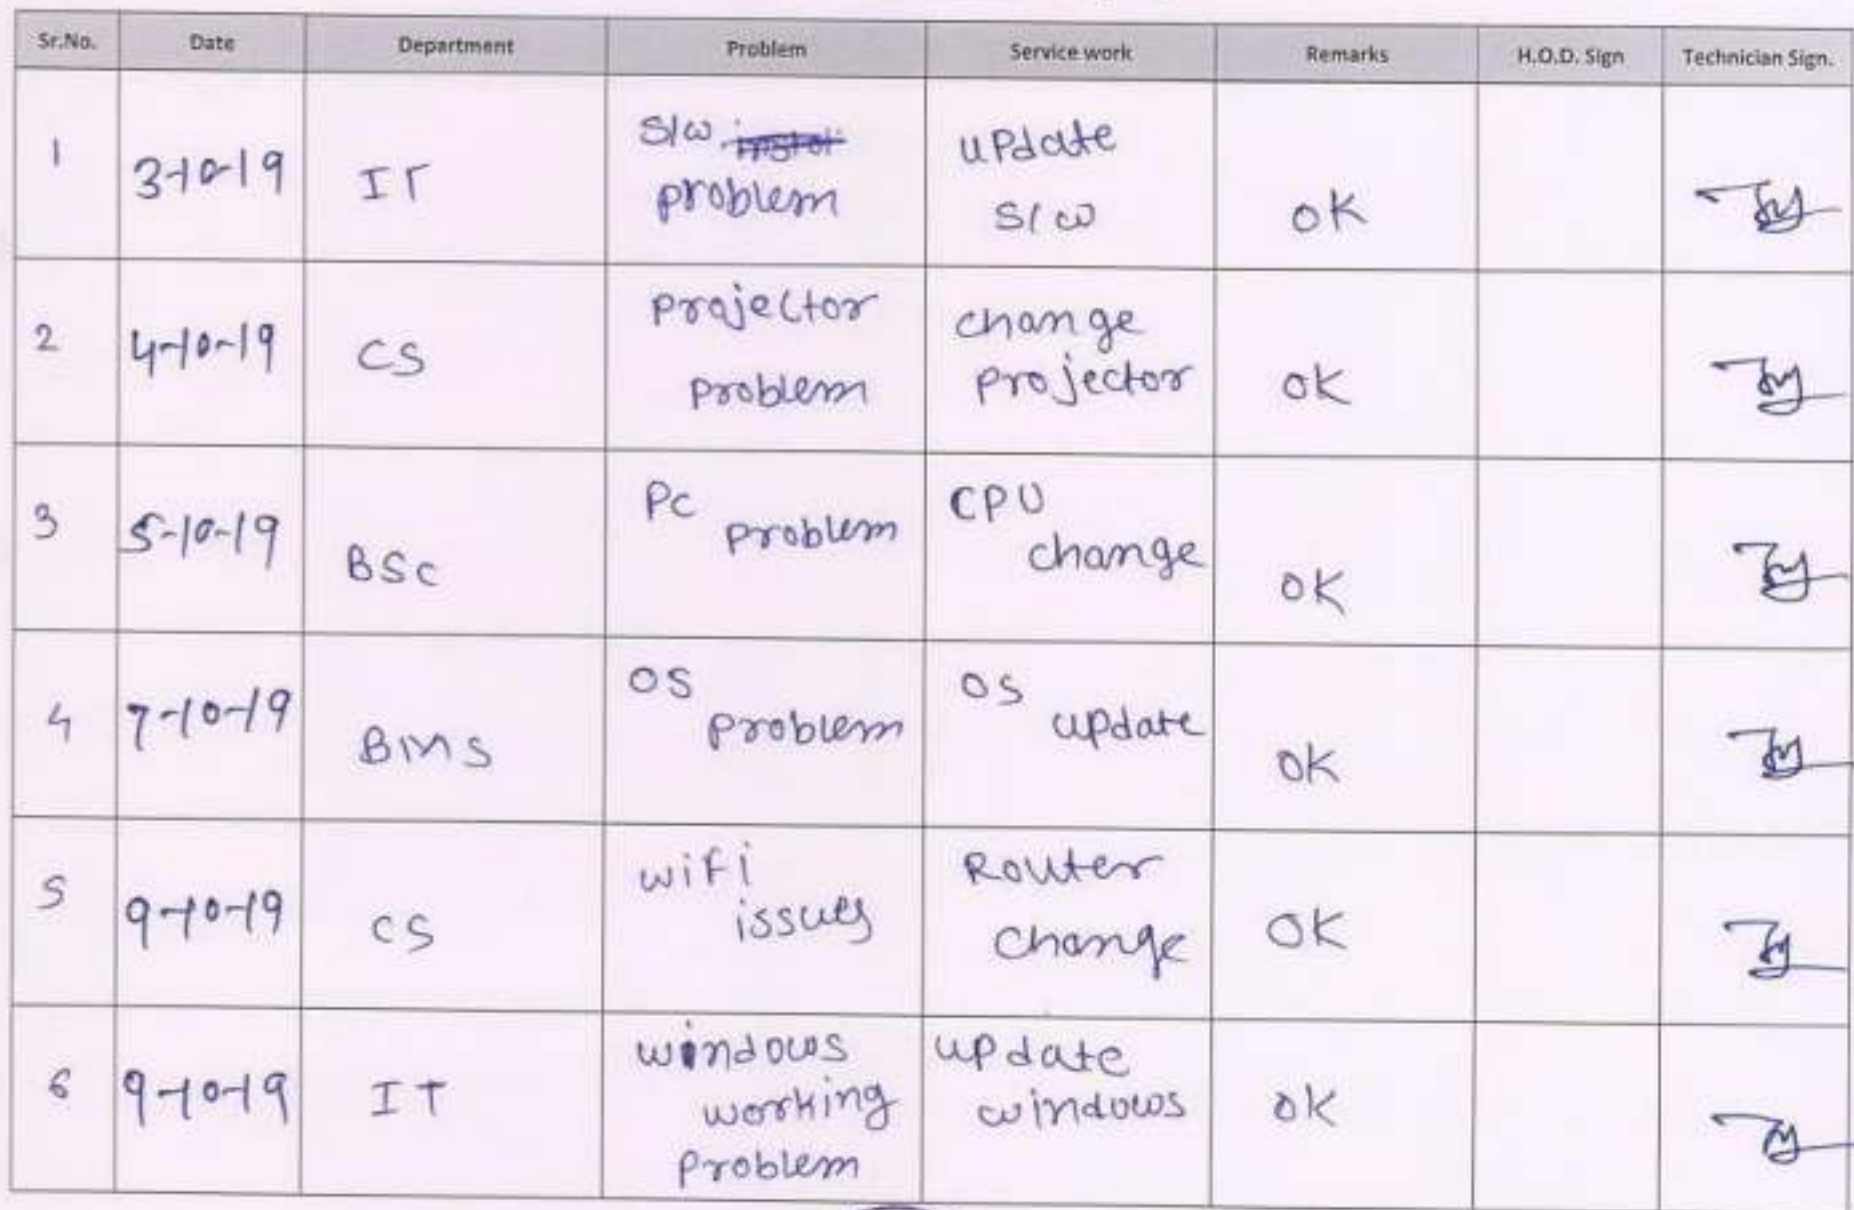 Sr.No. Date Department Problem Service work Remarks H.O.D. Sign Technician Sign.
1 3-10-19 IT S/w problem update S/w OK
2 4-10-19 CS projector problem change projector OK
3 5-10-19 BSc PC problem CPU change OK
4 7-10-19 BMS OS problem OS update OK
5 9-10-19 CS wifi issues Router change OK
6 9-10-19 IT windows working problem update windows OK